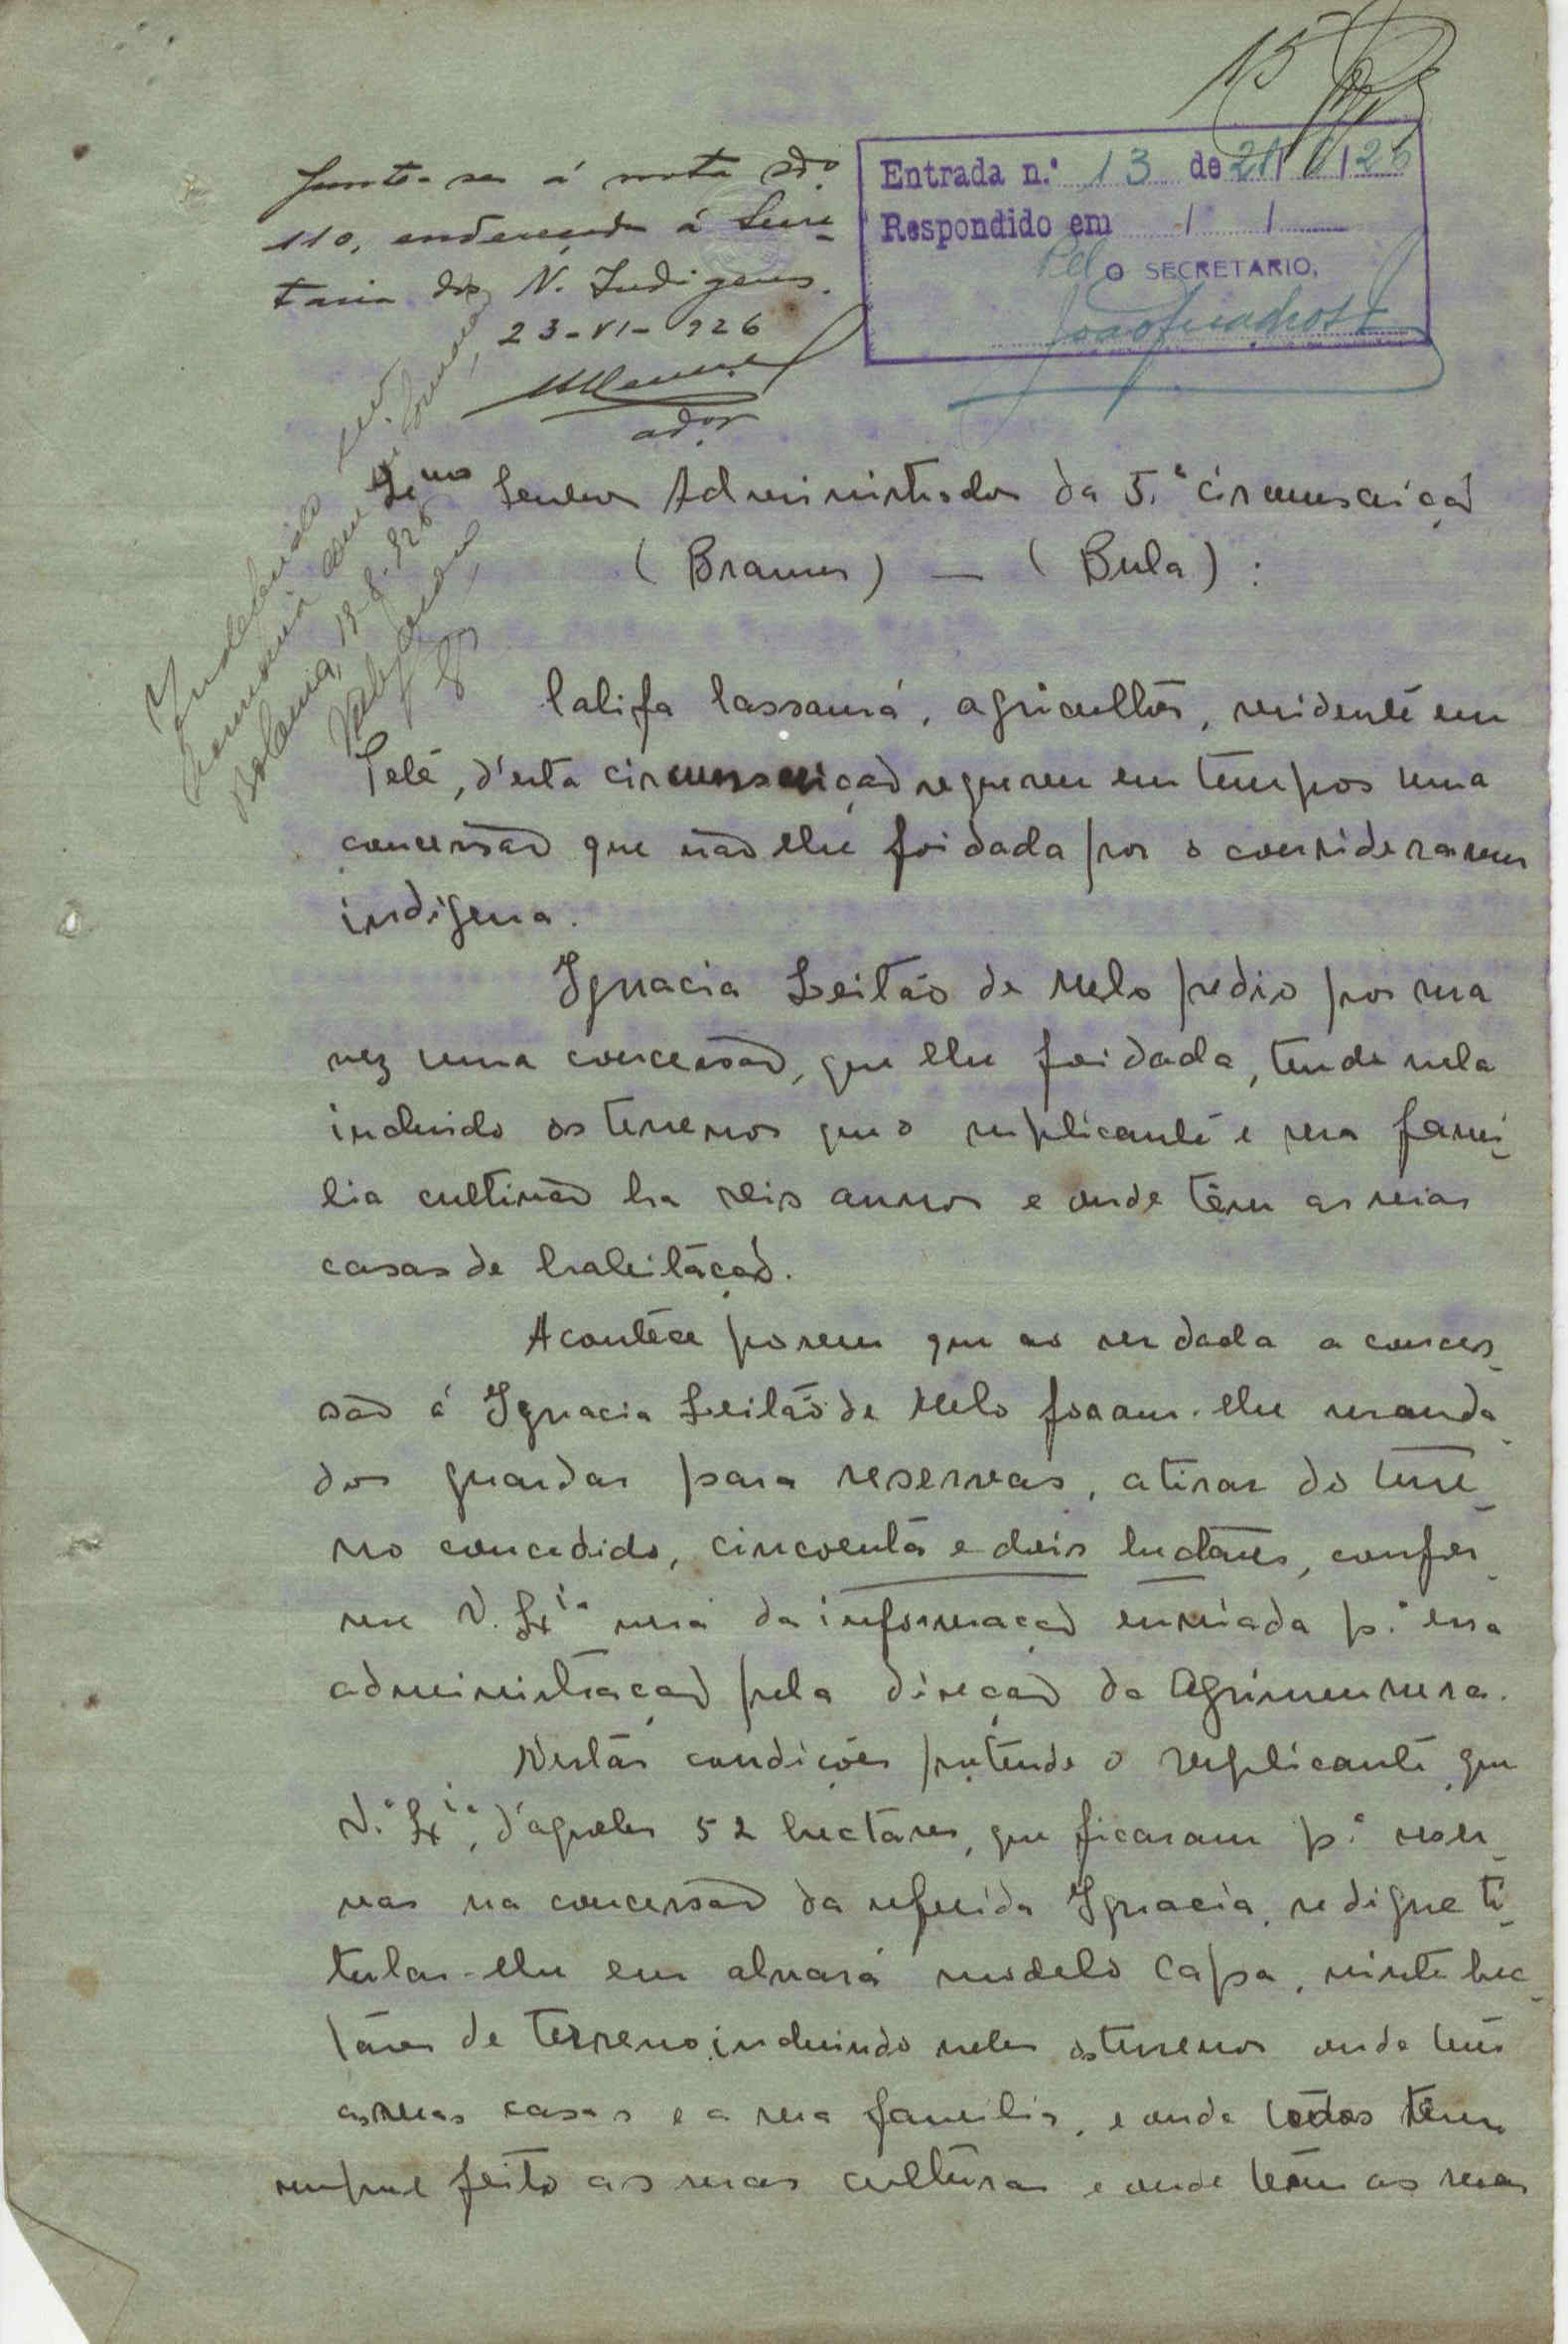 15
Entrada n.º 13 de 21/6/26
Respondido em / /
Pel O SECRETARIO,
Junte-se á nota
110, endereçada á Secre-
taria dos N. Indigenas.
23-VI-926
ador
Indeferido
Bolama, 13-8-926
Ex.mo Senhor Administrador da 5.ª circumscrição
(Brames) — (Bula):
Califa Cassamá, agricultor, residente em
Pelé, d'esta circumscrição requereu em tempos uma
concessão que não lhe foi dada por o considerarem
indigena.
Ignacia Leitão de Melo pedio por sua
vez uma concessão, que lhe foi dada, tendo nela
incluido os terrenos que o suplicante e sua fami-
lia cultivão ha seis annos e onde têm as suas
casas de habitação.
Acontece porem que ao ser dada a conces-
são á Ignacia Leitão de Melo foram-lhe manda-
dos guardar para reservas, a tirar do terre-
no concedido, cincoenta e dois hectares, confor-
me V. Ex.ia verá da informação enviada p.ª essa
administração pela direção da Agrimensura.
Nestas condições pretende o suplicante que
V.ª Ex.ia, d'aqueles 52 hectares, que ficaram p.ª reser-
vas na concessão da referida Ignacia, se digne ti-
tular-lhe em alvará modelo Capa, vinte hec-
tares de terreno, incluindo neles os terrenos onde tem
as suas casas e a sua familia, e onde todos têem
sempre feito as suas culturas e onde teem as suas